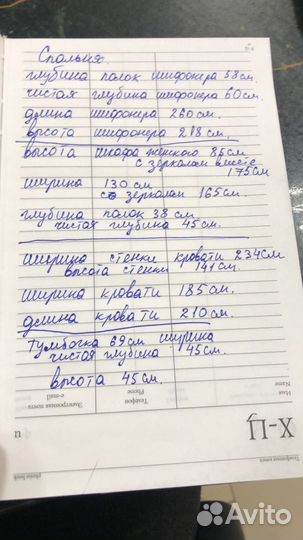 Спальня.
глубина полок шифонера 58см.
чистая глубина шифонера 60см.
длина шифонера 260см.
высота шифонера 218см.
высота шкафа женского 85см
с зеркалом вместе
175см
ширина 130см
с зеркалом 165см.
глубина полок 38см.
чистая глубина 45см.
ширина стенки кровати 234см
высота стенки 141см.
ширина кровати 185см.
длина кровати 210см.
Тумбочка 69см ширина
чистая глубина 45см.
высота 45см.
Имя
Name
Телефон
Phone
Электронная почта
e-mail
Х-Ц
u
Телефонная книга
phone book
Avito